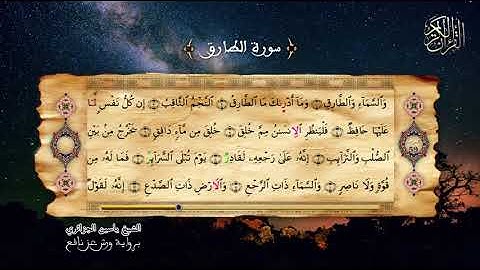 القرآن الكريم
سورة الطارق
وَالسَّمَآءِ وَالطَّارِقِ وَمَآ أَدْرٜىٰكَ مَا اَلطَّارِقُ اُ۬لنَّجْمُ اُ۬لثَّاقِبُ إِن كُلُّ نَفْسٖ لَّمَا
عَلَيْهَا حَافِظٞ فَلْيَنظُرِ اِ۬لِانسَٰنُ مِمَّ خُلِقَ خُلِقَ مِن مَّآءٖ دَافِقٖ يَخْرُجُ مِنۢ بَيْنِ
اِ۬لصُّلْبِ وَالتَّرَآئِبِ إِنَّهُۥ عَلَىٰ رَجْعِهِۦ لَقَادِرٞ يَوْمَ تُبْلَى اَ۬لسَّرَآئِرُ فَمَا لَهُۥ مِن
قُوَّةٖ وَلَا نَاصِرٖ وَالسَّمَآءِ ذَاتِ اِ۬لرَّجْعِ وَالَارْضِ ذَاتِ اِ۬لصَّدْعِ إِنَّهُۥ لَقَوْلٞ
الشيخ ياسين الجزائري
برواية ورش عن نافع